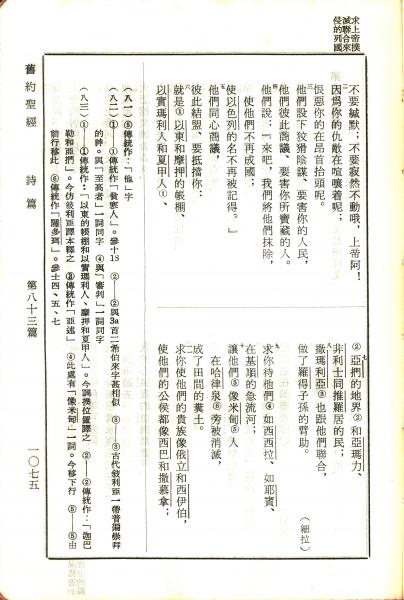 求上帝撲
滅聯合來
侵的列國
二 不要緘默,不要寂然不動哦,上帝阿!
因為你的仇敵在喧嚷着呢;
恨惡你的在昂首抬頭呢。
三 他們設下狡猾陰謀、要害你的人民,
他們彼此商議、要害你所寶藏的人。
四 他們說:『來吧,我們將他們抹除,
使他們不再成國;
使以色列的名不再被記得。』
五 他們同心商議,
彼此結盟、要抵擋你:
六 就是①以東和摩押的帳棚、
以實瑪利人和夏甲人①、
七 ②亞捫的地界②和亞瑪力、
非利士同推羅居的民;
八 撒瑪利亞③也跟他們聯合,
做了羅得子孫的臂助。
(細拉)
九 求你待他們④如西西拉、如耶賓、
在基順的急流河;
讓他們⑤像米甸⑤人
十 在哈律泉⑥旁被消滅,
成了田間的糞土。
十一 求你使他們的貴族像俄立和西伊伯,
使他們的公侯都像西巴和撒慕拿;
(八一)⑤傳統作:「他」字
(八二)①—①傳統作「貧寒人」。參十18 ②—②與3a首二希伯來字甚相似 ③—③古代敍利亞一帶普遍崇拜
的神。與「至高者」一詞同字 ④與「審判」一詞同字
(八三)①—①傳統作:「以東的帳棚和以實瑪利人、摩押和夏甲人」。今調換位置譯之 ②—②傳統作:「迦巴
勒和亞捫」。今仿敍利亞譯本釋之 ③傳統作「亞述」 ④此處有「像米甸」一詞。今移下行 ⑤—⑤由
前行移此 ⑥傳統作「隱多珥」。參士四、五、七
舊約聖經 詩篇 第八十三篇 一〇七五